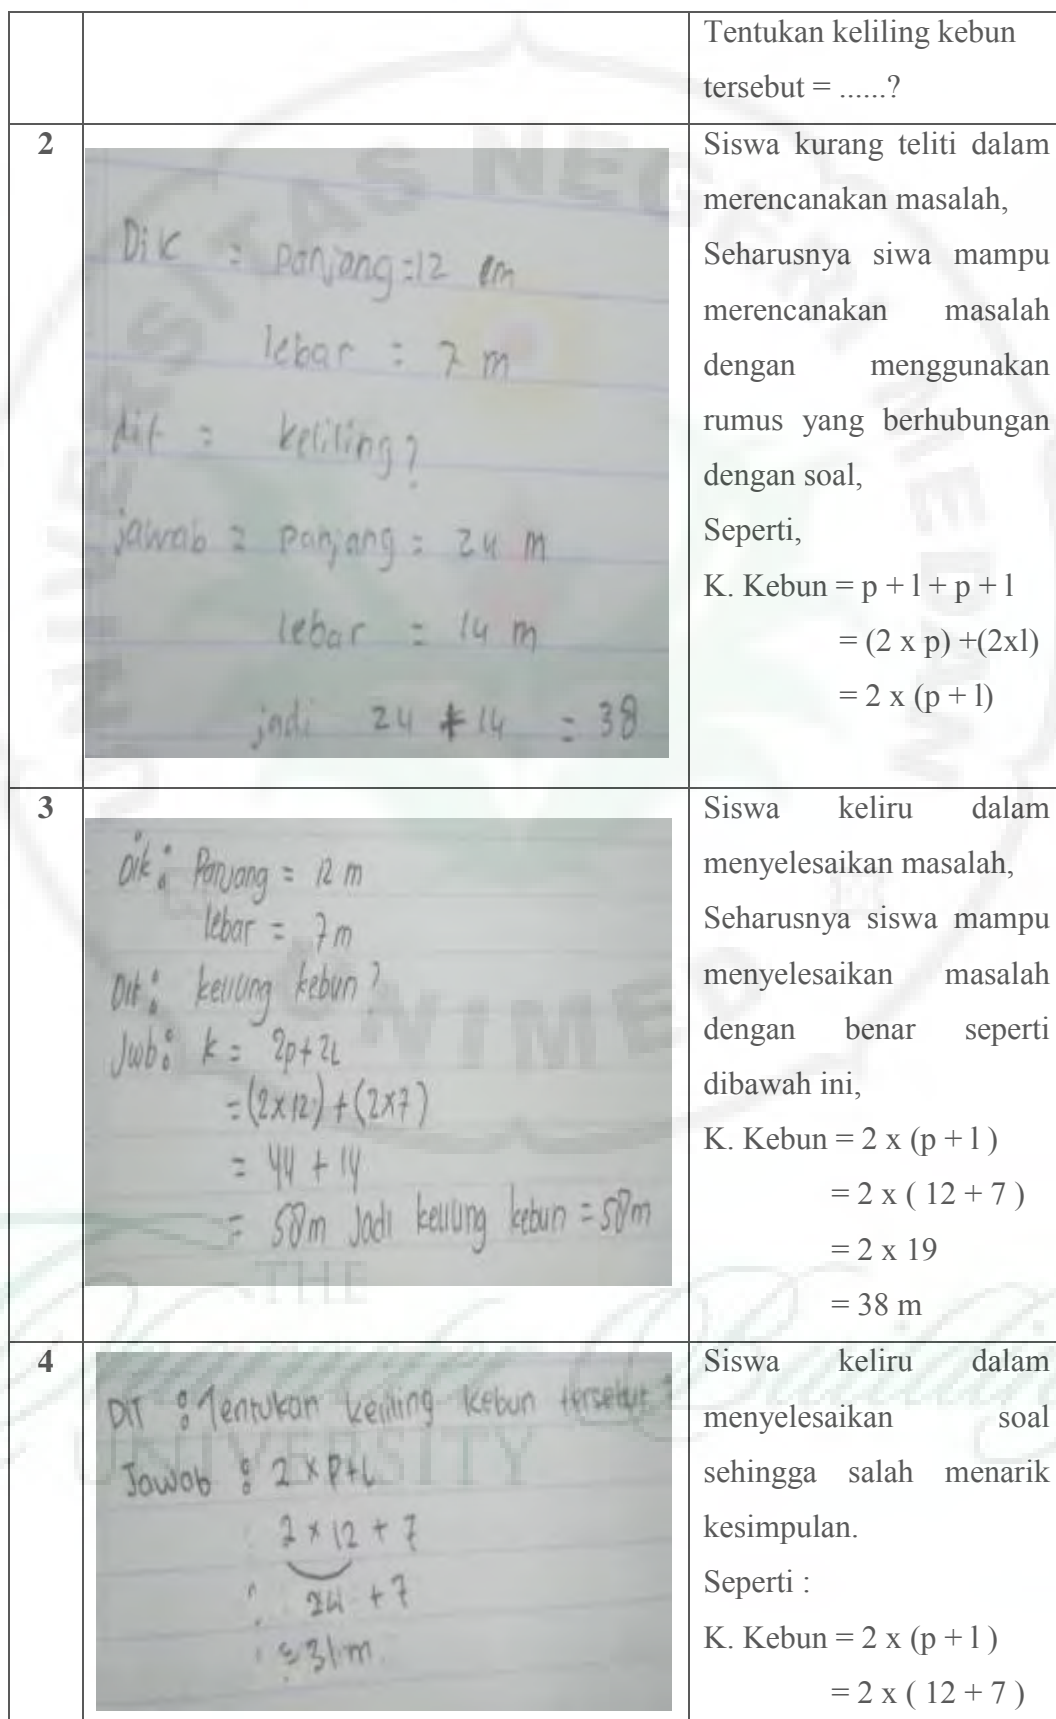 Tentukan keliling kebun
tersebut = ......?
2
Dik : panjang = 12 m
lebar = 7 m
dit = keliling?
jawab = panjang = 24 m
lebar = 14 m
jadi 24 + 14 = 38
Siswa kurang teliti dalam
merencanakan masalah,
Seharusnya siwa mampu
merencanakan masalah
dengan menggunakan
rumus yang berhubungan
dengan soal,
Seperti,
K. Kebun = p + l + p + l
= (2 x p) +(2xl)
= 2 x (p + l)
3
Dik : Panjang = 12 m
lebar = 7 m
Dit : keliling kebun?
Jwb : k = 2p + 2L
= (2x12) + (2x7)
= 44 + 14
= 58m Jadi keliling kebun = 58m
Siswa keliru dalam
menyelesaikan masalah,
Seharusnya siswa mampu
menyelesaikan masalah
dengan benar seperti
dibawah ini,
K. Kebun = 2 x (p + l )
= 2 x ( 12 + 7 )
= 2 x 19
= 38 m
4
DIT : Tentukan keliling kebun tersebut ?
Jawab : 2 x P+L
: 2 x 12 + 7
: 24 + 7
: = 31 m.
Siswa keliru dalam
menyelesaikan soal
sehingga salah menarik
kesimpulan.
Seperti :
K. Kebun = 2 x (p + l )
= 2 x ( 12 + 7 )
UNIVERSITAS NEGERI MEDAN
UNIMED
THE
Character Building
UNIVERSITY